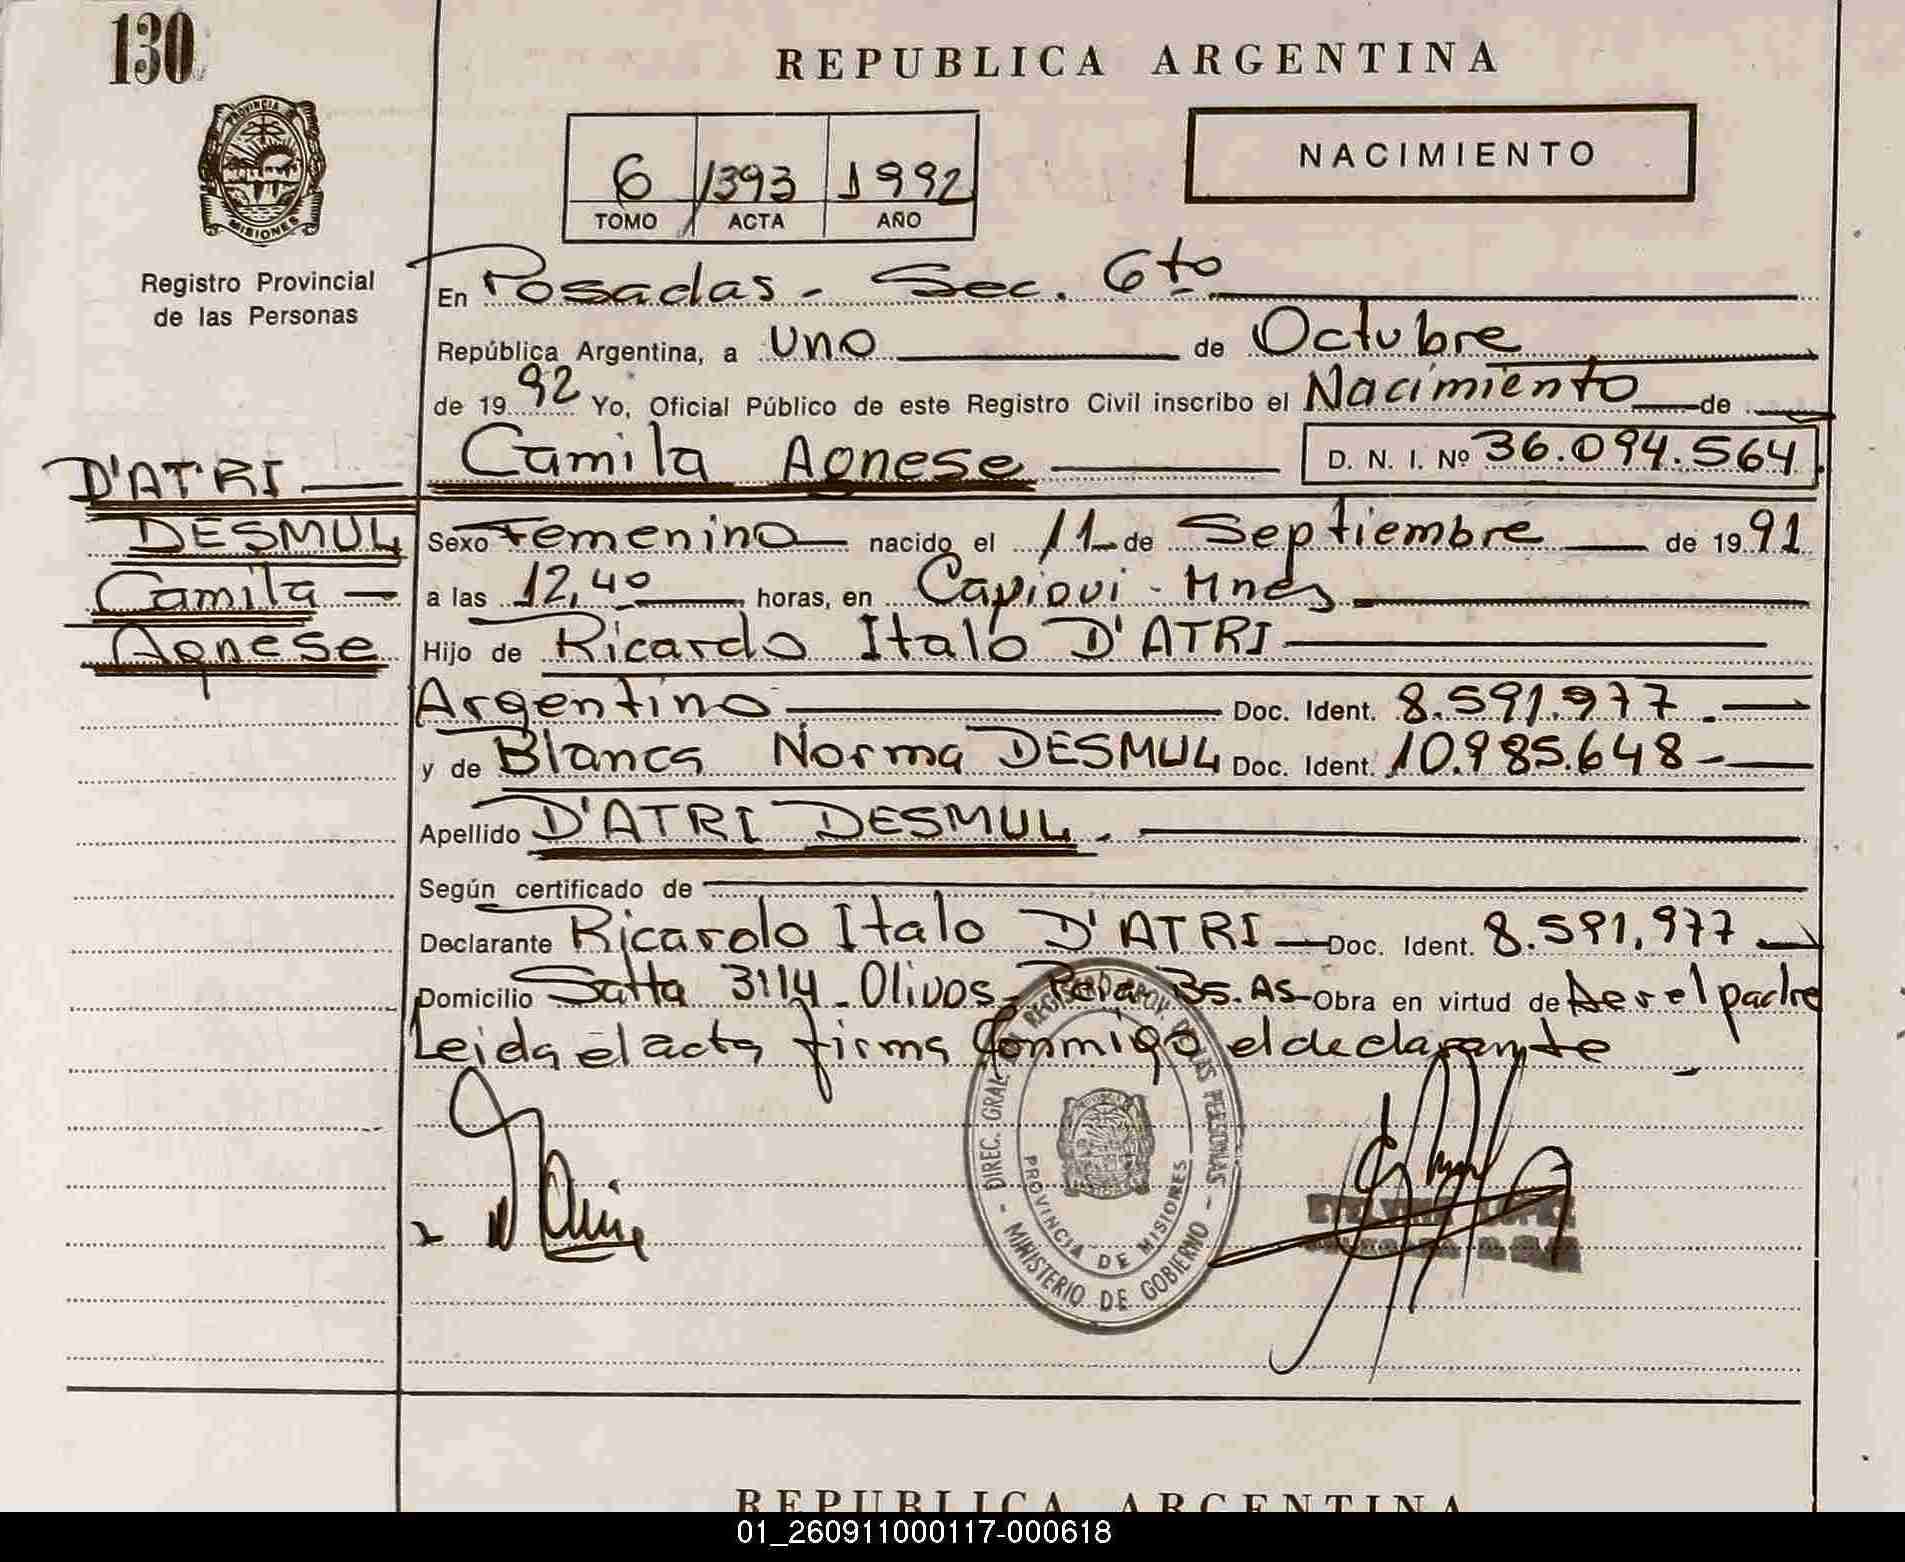 130
REPUBLICA ARGENTINA
PROVINCIA
MISIONES
Registro Provincial
de las Personas
6 1393 1992
TOMO ACTA AÑO
NACIMIENTO
En Posadas - Sec. 6to
República Argentina, a uno de Octubre
de 19 92 Yo, Oficial Público de este Registro Civil inscribo el Nacimiento de
Camila Agnese D. N. I. Nº 36.094.564
D'ATRI
DESMUL
Camila
Agnese
Sexo Femenino nacido el 11 de Septiembre de 19 91
a las 12,40 horas, en Capioví - Mnes
Hijo de Ricardo Italo D'ATRI
Argentino Doc. Ident. 8.591.977.
y de Blanca Norma DESMUL Doc. Ident. 10.985.648-
Apellido D'ATRI DESMUL.
Según certificado de
Declarante Ricardo Italo D'ATRI Doc. Ident. 8.591.977
Domicilio 3114 - Olivos - Bs. As Obra en virtud de ser el padre
Leida el acta firma conmigo el declarante
DIREC. GRAL. DEL REGISTRO DE LAS PERSONAS
MINISTERIO DE GOBIERNO
PROVINCIA DE MISIONES
REPUBLICA ARGENTINA
01_260911000117-000618